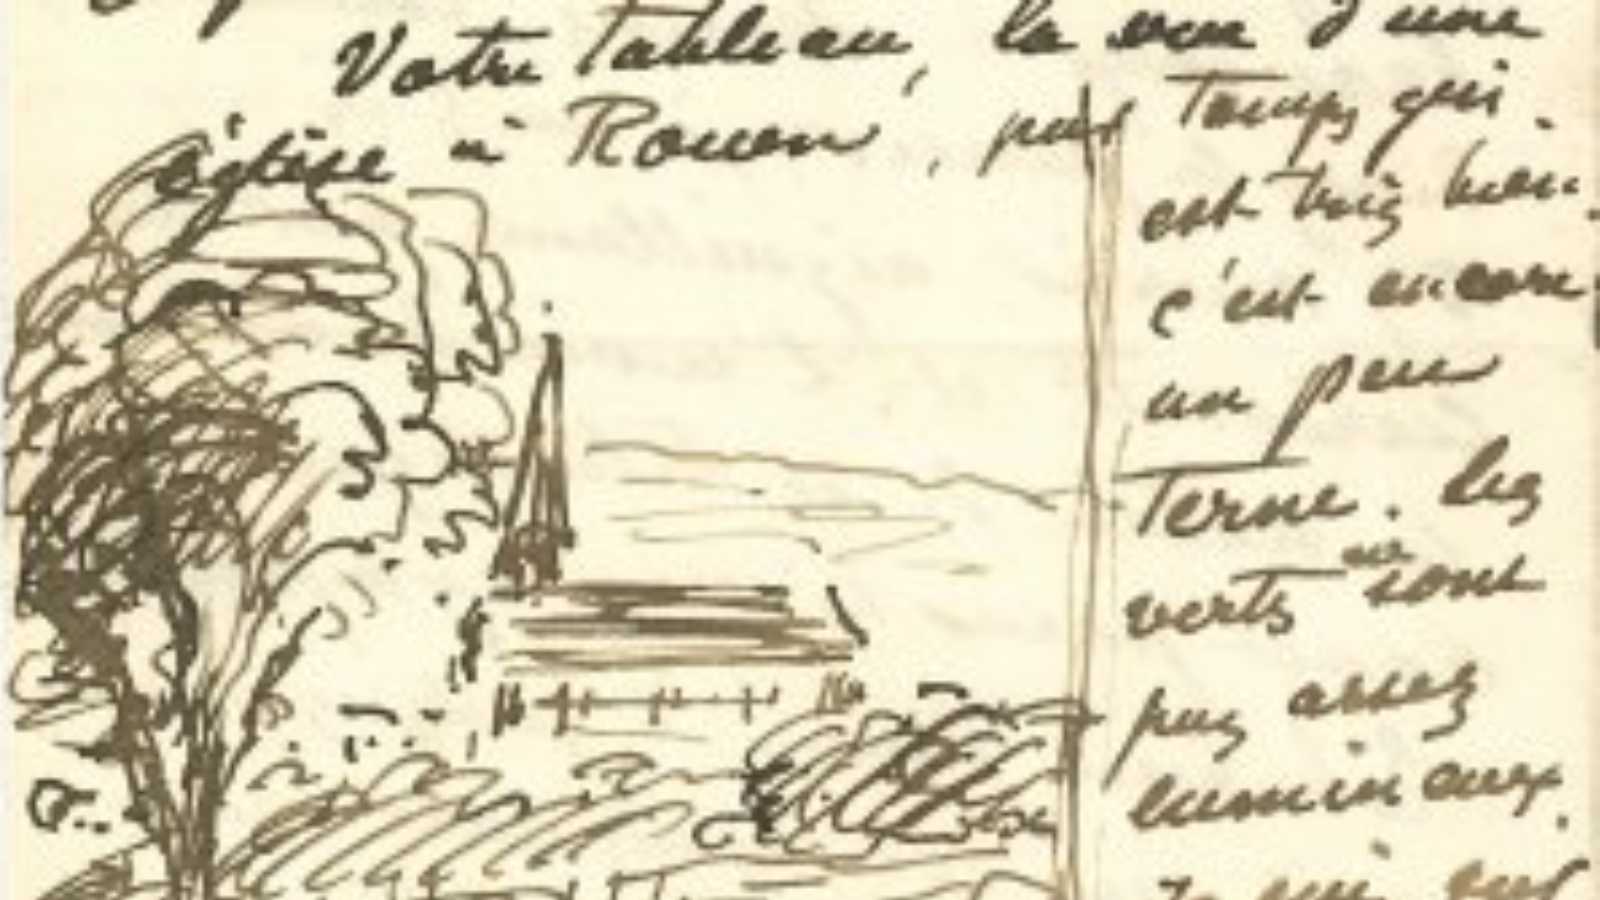 Votre Tableau, la vue d'une
église à Rouen, par Temps gris
est très bien.
c'est encore
un peu
Terne. les
verts ne sont
pas assez
lumineux.